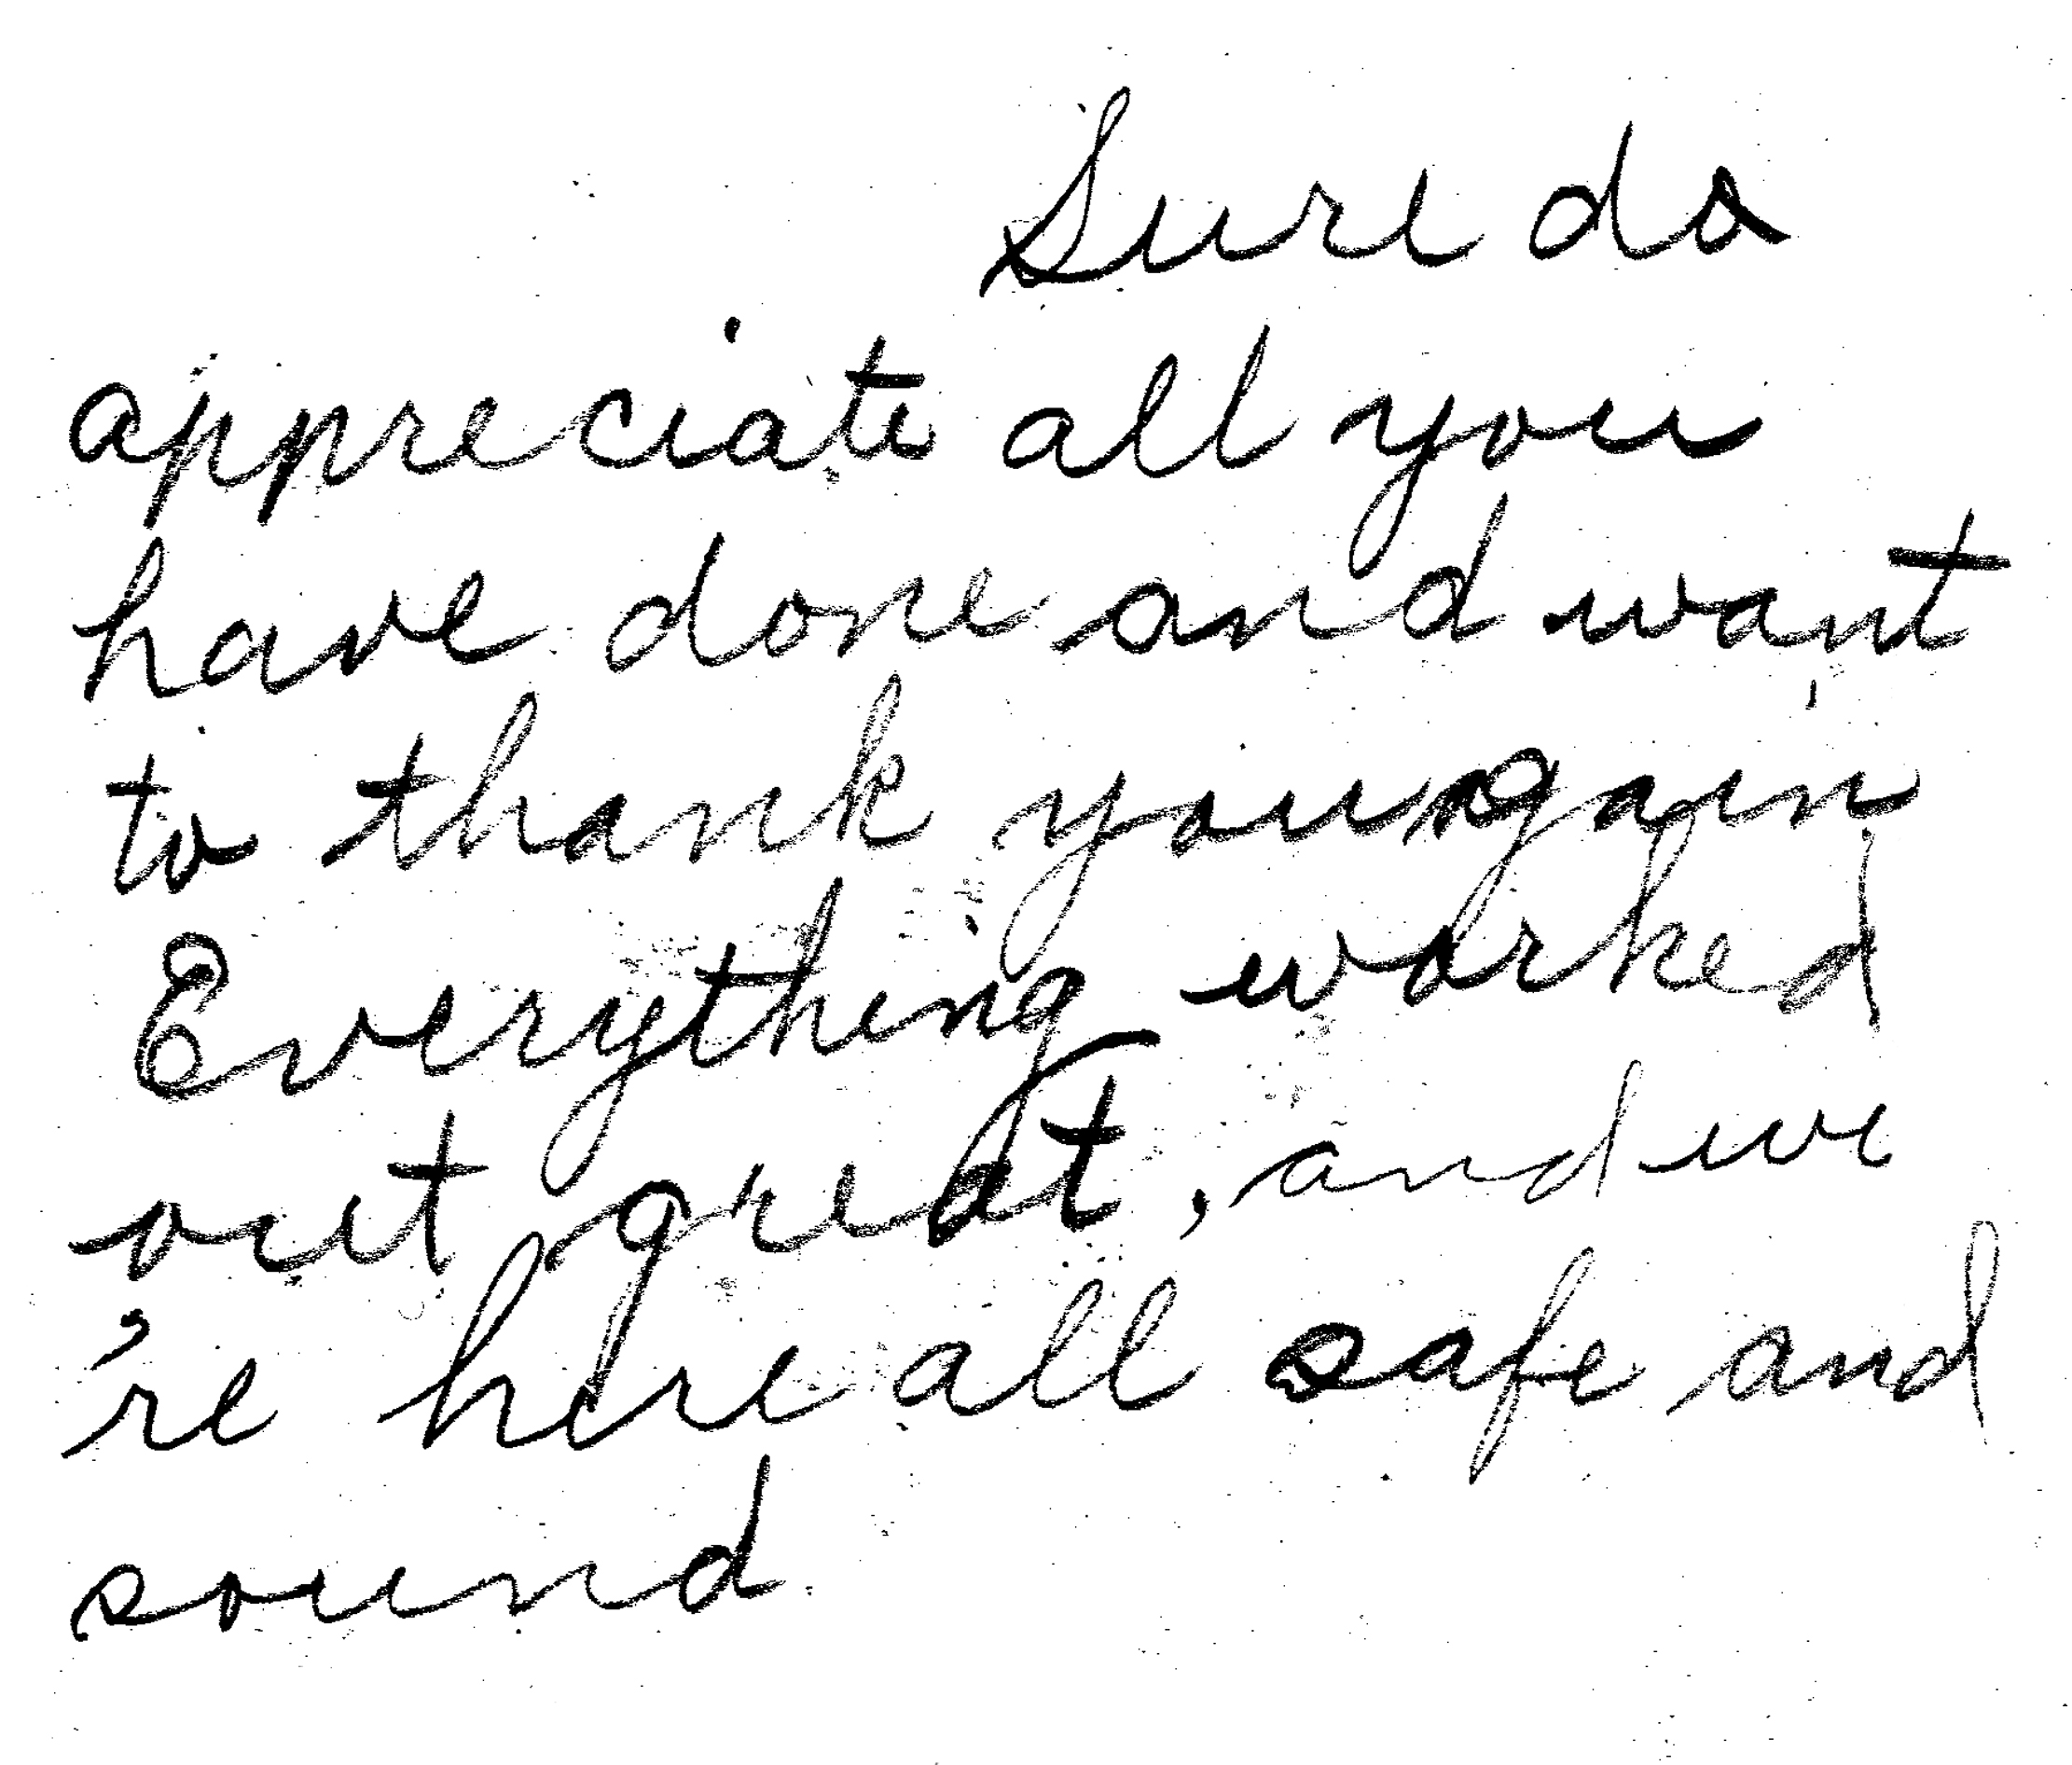 Sure do
appreciate all you
have done and want
to thank you again
Everything worked
out great, and we
're here all safe and
sound.